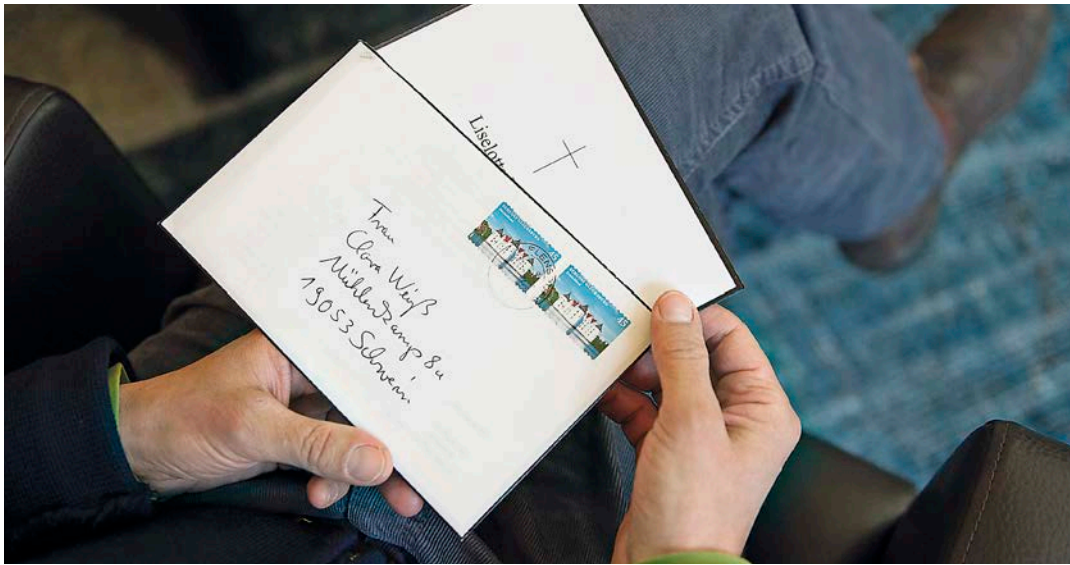 Liselott
Frau
Clara Weiß
Mühlenkamp 8a
19053 Schwerin
45
45
FLENS